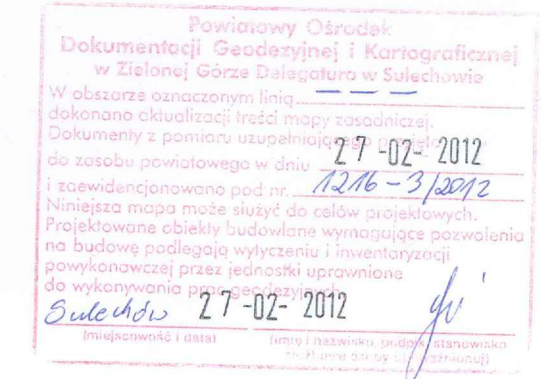 Powiatowy Ośrodek
Dokumentacji Geodezyjnej i Kartograficznej
w Zielonej Górze Delegatura w Sulechowie
W obszarze oznaczonym linią
dokonano aktualizacji treści mapy zasadniczej.
Dokumenty z pomiaru uzupełniającego przyjęto
do zasobu powiatowego w dniu 27 -02- 2012
i zaewidencjonowano pod nr. 1216-3/2012
Niniejsza mapa może służyć do celów projektowych.
Projektowane obiekty budowlane wymagające pozwolenia
na budowę podlegają wytyczeniu i inwentaryzacji
powykonawczej przez jednostki uprawnione
do wykonywania prac geodezyjnych
Sulechów 27 -02- 2012
(miejscowość i data) (imię i nazwisko, podpis, stanowisko